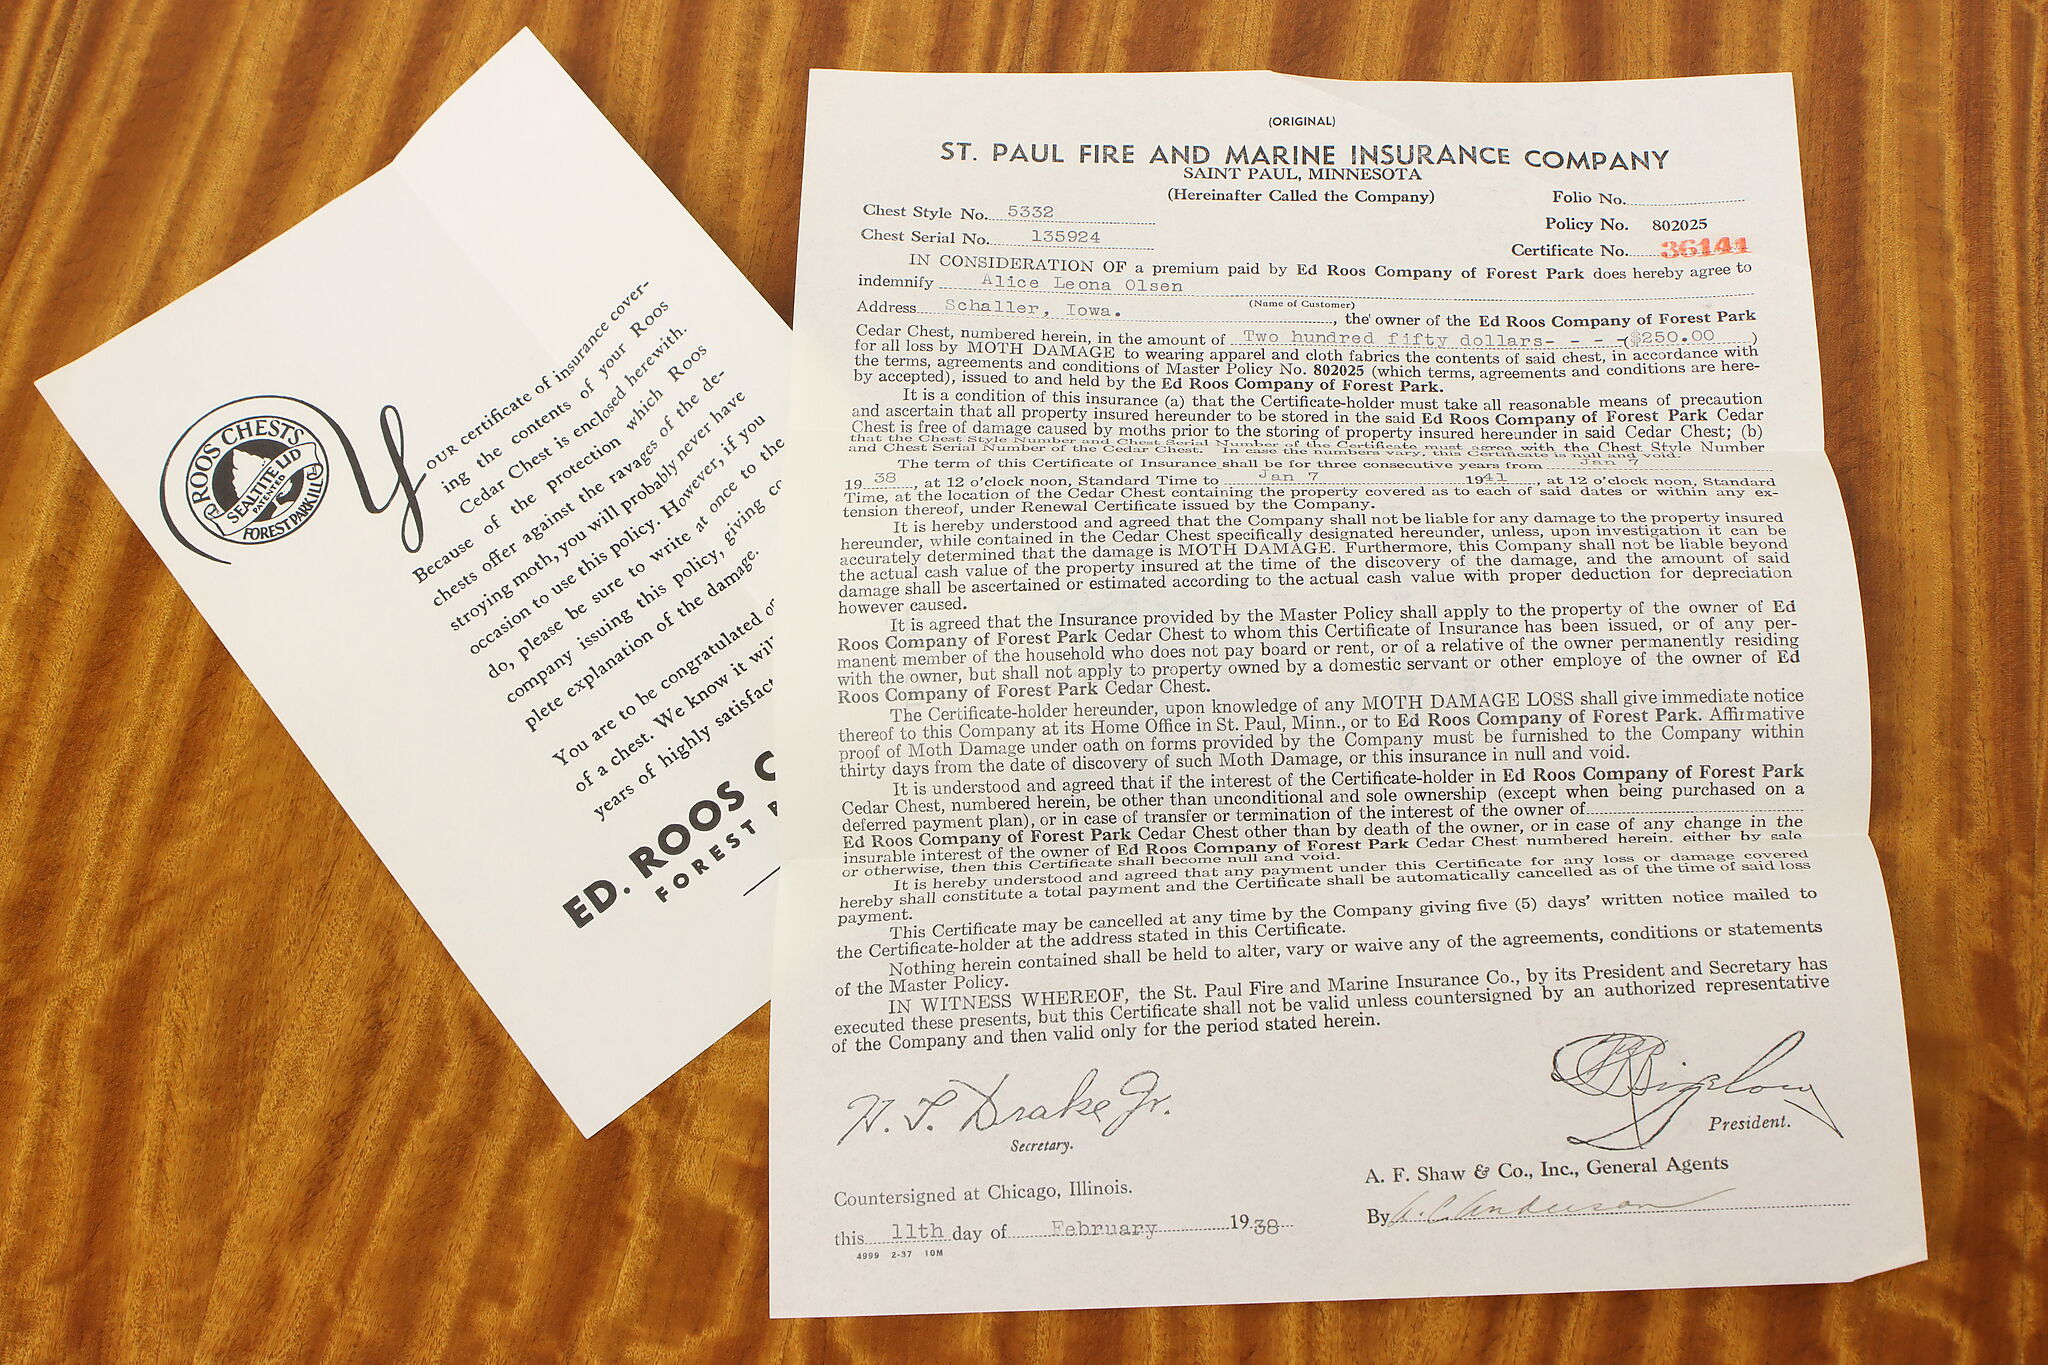 ROOS CHESTS
SEALTITE LID
PATENTED
FOREST PARK ILL
YOUR certificate of insurance cover-
ing the contents of your Roos
Cedar Chest is enclosed herewith.
Because of the protection which Roos
chests offer against the ravages of the de-
stroying moth, you will probably never have
occasion to use this policy. However, if you
do, please be sure to write at once to the
company issuing this policy, giving
plete explanation of the damage.
You are to be congratulated
of a chest. We know it
years of highly
ED. ROOS
FOREST
(ORIGINAL)
ST. PAUL FIRE AND MARINE INSURANCE COMPANY
SAINT PAUL, MINNESOTA
(Hereinafter Called the Company)
Folio No.
Chest Style No. 5332
Policy No. 802025
Chest Serial No. 135924
Certificate No. 36141
IN CONSIDERATION OF a premium paid by Ed Roos Company of Forest Park does hereby agree to
indemnify Alice Leona Olsen
(Name of Customer)
Address Schaller, Iowa. , the owner of the Ed Roos Company of Forest Park
Cedar Chest, numbered herein, in the amount of Two hundred fifty dollars- - - -($250.00 )
for all loss by MOTH DAMAGE to wearing apparel and cloth fabrics the contents of said chest, in accordance with
the terms, agreements and conditions of Master Policy No. 802025 (which terms, agreements and conditions are here-
by accepted), issued to and held by the Ed Roos Company of Forest Park.
It is a condition of this insurance (a) that the Certificate-holder must take all reasonable means of precaution
and ascertain that all property insured hereunder to be stored in the said Ed Roos Company of Forest Park Cedar
Chest is free of damage caused by moths prior to the storing of property insured hereunder in said Cedar Chest; (b)
that the Chest Style Number and Chest Serial Number of the Certificate must agree with the Chest Style Number
and Chest Serial Number of the Cedar Chest. In case the numbers vary, this Certificate is null and void.
The term of this Certificate of Insurance shall be for three consecutive years from Jan 7
19 38 , at 12 o'clock noon, Standard Time to Jan 7 1941 , at 12 o'clock noon, Standard
Time, at the location of the Cedar Chest containing the property covered as to each of said dates or within any ex-
tension thereof, under Renewal Certificate issued by the Company.
It is hereby understood and agreed that the Company shall not be liable for any damage to the property insured
hereunder, while contained in the Cedar Chest specifically designated hereunder, unless, upon investigation it can be
accurately determined that the damage is MOTH DAMAGE. Furthermore, this Company shall not be liable beyond
the actual cash value of the property insured at the time of the discovery of the damage, and the amount of said
damage shall be ascertained or estimated according to the actual cash value with proper deduction for depreciation
however caused.
It is agreed that the Insurance provided by the Master Policy shall apply to the property of the owner of Ed
Roos Company of Forest Park Cedar Chest to whom this Certificate of Insurance has been issued, or of any per-
manent member of the household who does not pay board or rent, or of a relative of the owner permanently residing
with the owner, but shall not apply to property owned by a domestic servant or other employe of the owner of Ed
Roos Company of Forest Park Cedar Chest.
The Certificate-holder hereunder, upon knowledge of any MOTH DAMAGE LOSS shall give immediate notice
thereof to this Company at its Home Office in St. Paul, Minn., or to Ed Roos Company of Forest Park. Affirmative
proof of Moth Damage under oath on forms provided by the Company must be furnished to the Company within
thirty days from the date of discovery of such Moth Damage, or this insurance in null and void.
It is understood and agreed that if the interest of the Certificate-holder in Ed Roos Company of Forest Park
Cedar Chest, numbered herein, be other than unconditional and sole ownership (except when being purchased on a
deferred payment plan), or in case of transfer or termination of the interest of the owner of
Ed Roos Company of Forest Park Cedar Chest other than by death of the owner, or in case of any change in the
insurable interest of the owner of Ed Roos Company of Forest Park Cedar Chest numbered herein, either by sale
or otherwise, then this Certificate shall become null and void.
It is hereby understood and agreed that any payment under this Certificate for any loss or damage covered
hereby shall constitute a total payment and the Certificate shall be automatically cancelled as of the time of said loss
payment.
This Certificate may be cancelled at any time by the Company giving five (5) days' written notice mailed to
the Certificate-holder at the address stated in this Certificate.
Nothing herein contained shall be held to alter, vary or waive any of the agreements, conditions or statements
of the Master Policy.
IN WITNESS WHEREOF, the St. Paul Fire and Marine Insurance Co., by its President and Secretary has
executed these presents, but this Certificate shall not be valid unless countersigned by an authorized representative
of the Company and then valid only for the period stated herein.
Drake Jr.
Secretary.
Bigelow
President.
A. F. Shaw & Co., Inc., General Agents
Countersigned at Chicago, Illinois.
By Anderson
this 11th day of February 1938
4999 2-37 10M